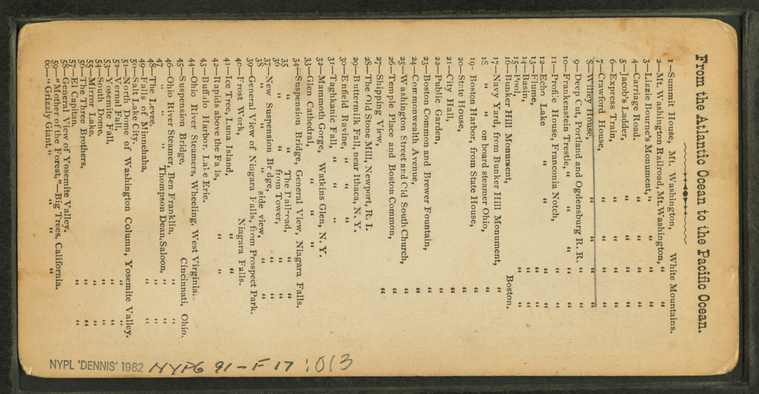 From the Atlantic Ocean to the Pacific Ocean.
1—Summit House, Mt. Washington, White Mountains.
2—Mt. Washington Railroad, Mt. Washington, " "
3—Lizzie Bourne's Monument, " " "
4—Carriage Road, " "
5—Jacob's Ladder, " "
6—Express Train, " "
7—Crawford House, " "
8—Willey House, " "
9—Deep Cut, Portland and Ogdensburg R. R. " "
10—Frankenstein Trestle, " " " "
11—Profile House, Franconia Notch, " "
12—Echo Lake " " "
13—Flume, " "
14—Basin, " "
15—Pool, " "
16—Bunker Hill Monument, Boston.
17—Navy Yard, from Bunker Hill Monument, "
18 " " on board steamer Ohio, "
19—Boston Harbor, from State House, "
20—State House, "
21—City Hall, "
22—Public Garden, "
23—Boston Common and Brewer Fountain, "
24—Commonwealth Avenue, "
25—Washington Street and Old South Church, "
26—Temple Place and Boston Common, "
27—Shipping View, "
28—The Old Stone Mill, Newport, R. I.
29—Buttermilk Fall, near Ithaca, N. Y.
30—Enfield Ravine, " " "
31—Taghkanic Fall, " " "
32—Mammoth Gorge, Watkins Glen, N. Y.
33—Glen Cathedral, " " "
34—Suspension Bridge, General View, Niagara Falls.
35 " " The Railroad, " "
36 " " from Tower, " "
37—New Suspension Bridge, " "
38 " " " side view, " "
39—General View of Niagara Falls, from Prospect Park.
40—Frost Work, Niagara Falls.
41—Ice Tree, Luna Island, " "
42—Rapids above the Falls, " "
43—Buffalo Harbor, Lake Erie.
44—Ohio River Steamers, Wheeling, West Virginia.
45—Suspension Bridge, Cincinnati, Ohio.
46—Ohio River Steamer, Ben Franklin, " "
47 " " " Thompson Dean, Saloon, " "
48—The Levee, " "
49—Falls of Minnehaha,
50—Salt Lake City.
51—North Dome of Washington Column, Yosemite Valley.
52—Vernal Fall, " "
53—Yosemite Fall, " "
54—South Dome, " "
55—Mirror Lake, " "
56—The Three Brothers, " "
57—El Capitan, " "
58—General View of Yosemite Valley.
59—"Mother of the Forest,"—Big Trees, California.
60—"Grizzly Giant." " " "
NYPL 'DENNIS' 1982 NYPG 91-F17:013